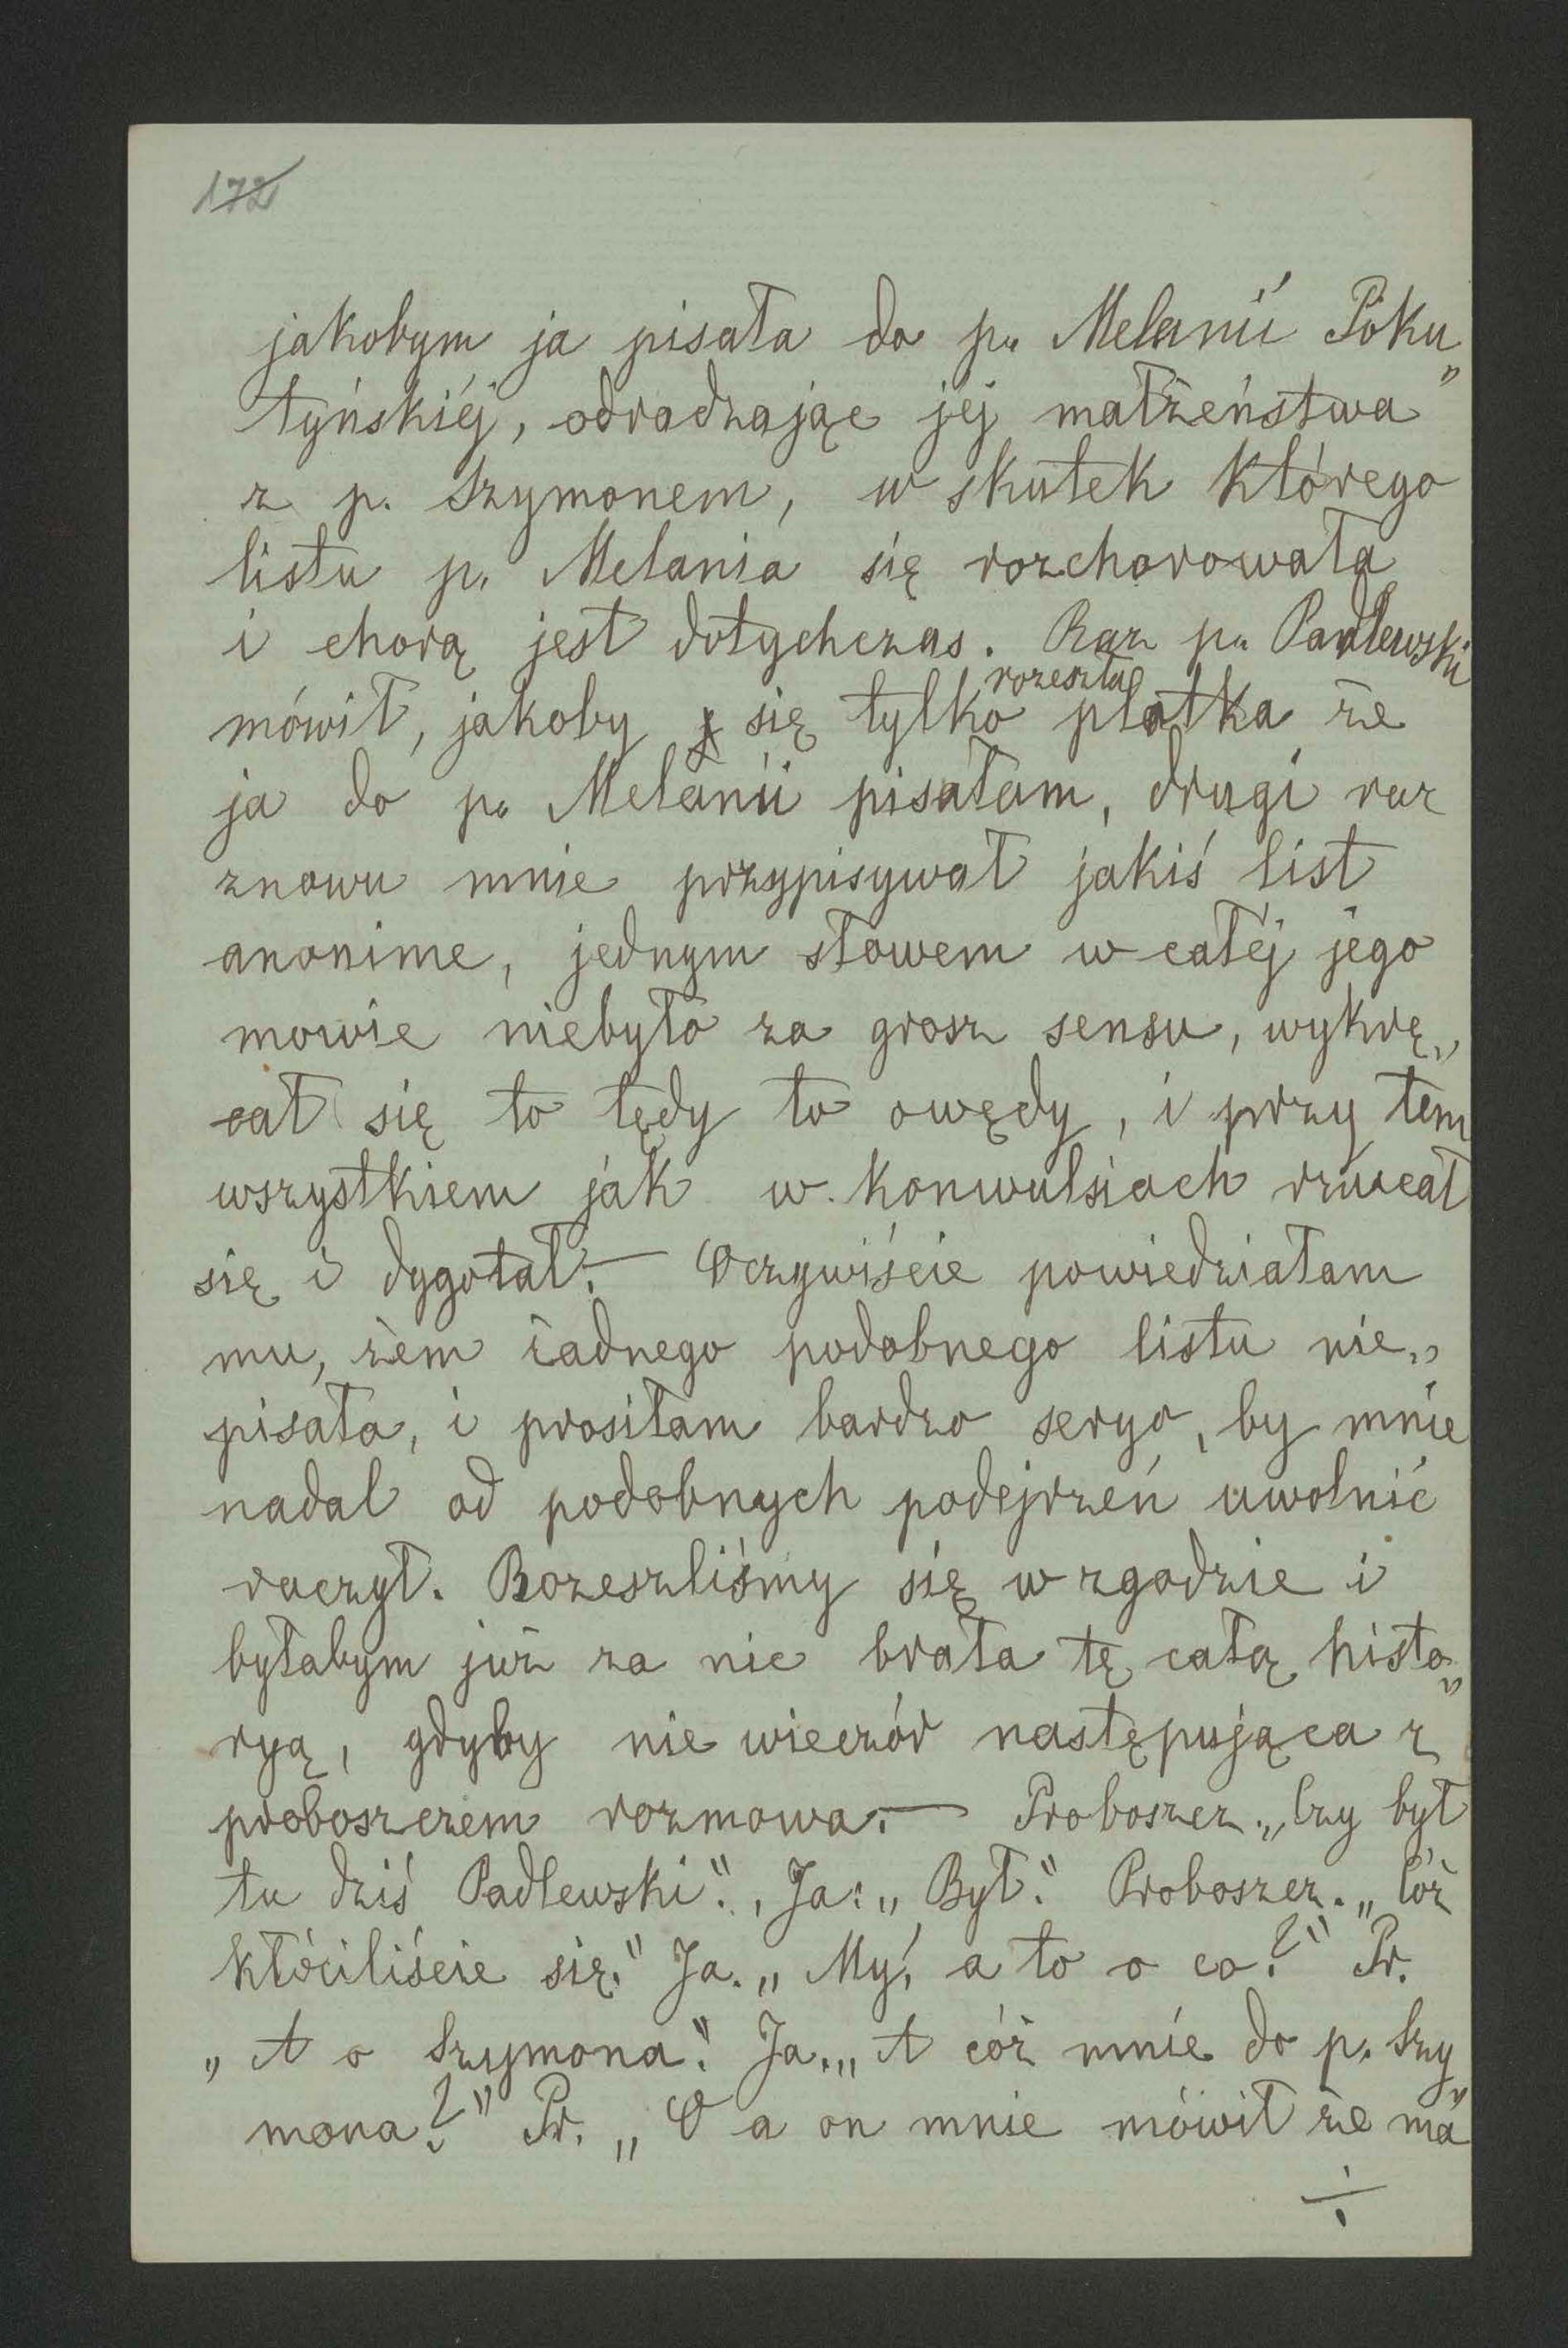 172
jakobym ja pisała do p. Melanii Poku„
tyńskiéj, odradzając jéj małżeństwa
z p. Szymonem, w skutek którego
listu p. Melania się rozchorowała
i chorą jest dotychczas. Raz p. Padlewski
mówił, jakoby się tylko rozeszła plotka że
ja do p. Melanii pisałam, drugi raz
znowu mnie przypisywał jakiś list
anonime, jednym słowem w całéj jego
mowie niebyło za grosz sensu, wykrę„
cał się to tędy to owędy, i przy tem
wszystkiem jak w konwulsiach rzucał
się i dygotał.— Oczywiście powiedziałam
mu, żem żadnego podobnego listu nie„
pisała, i prosiłam bardzo seryo, by mnie
nadal od podobnych podejrzeń uwolnić
raczył. Rozeszliśmy się w zgodzie i
byłabym już za nic brała tę całą histo„
ryą, gdyby nie wieczór następująca z
proboszczem rozmowa.— Proboszcz. „Czy był
tu dziś Padlewski". Ja: „Był." Proboszcz. „Cóż
kłóciliście się." Ja. „My, a to o co?" Pr.
„A o Szymona". Ja. „A cóż mnie do p. Szy„
mona?" Pr. „O a on mnie mówił że ma
÷